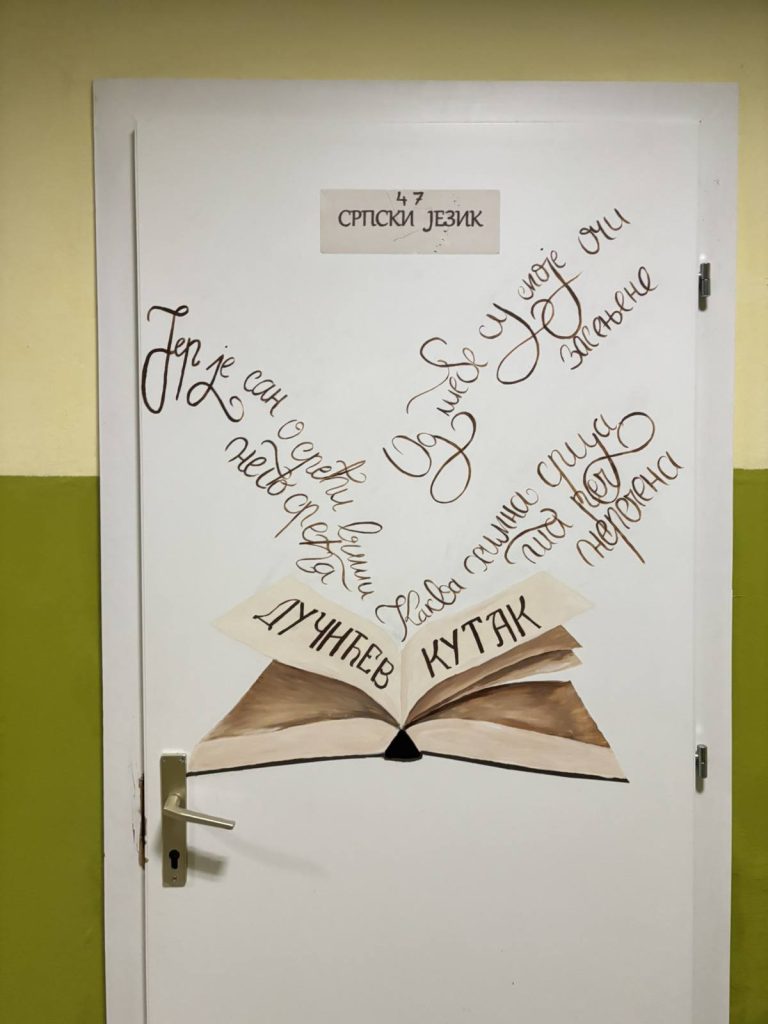 47
СРПСКИ ЈЕЗИК
Јер је сан о срећи виши
него срећа
Од тебе су моје очи
засењене
Каква химна срца
та реч
неречена
ДУЧИЋЕВ КУТАК